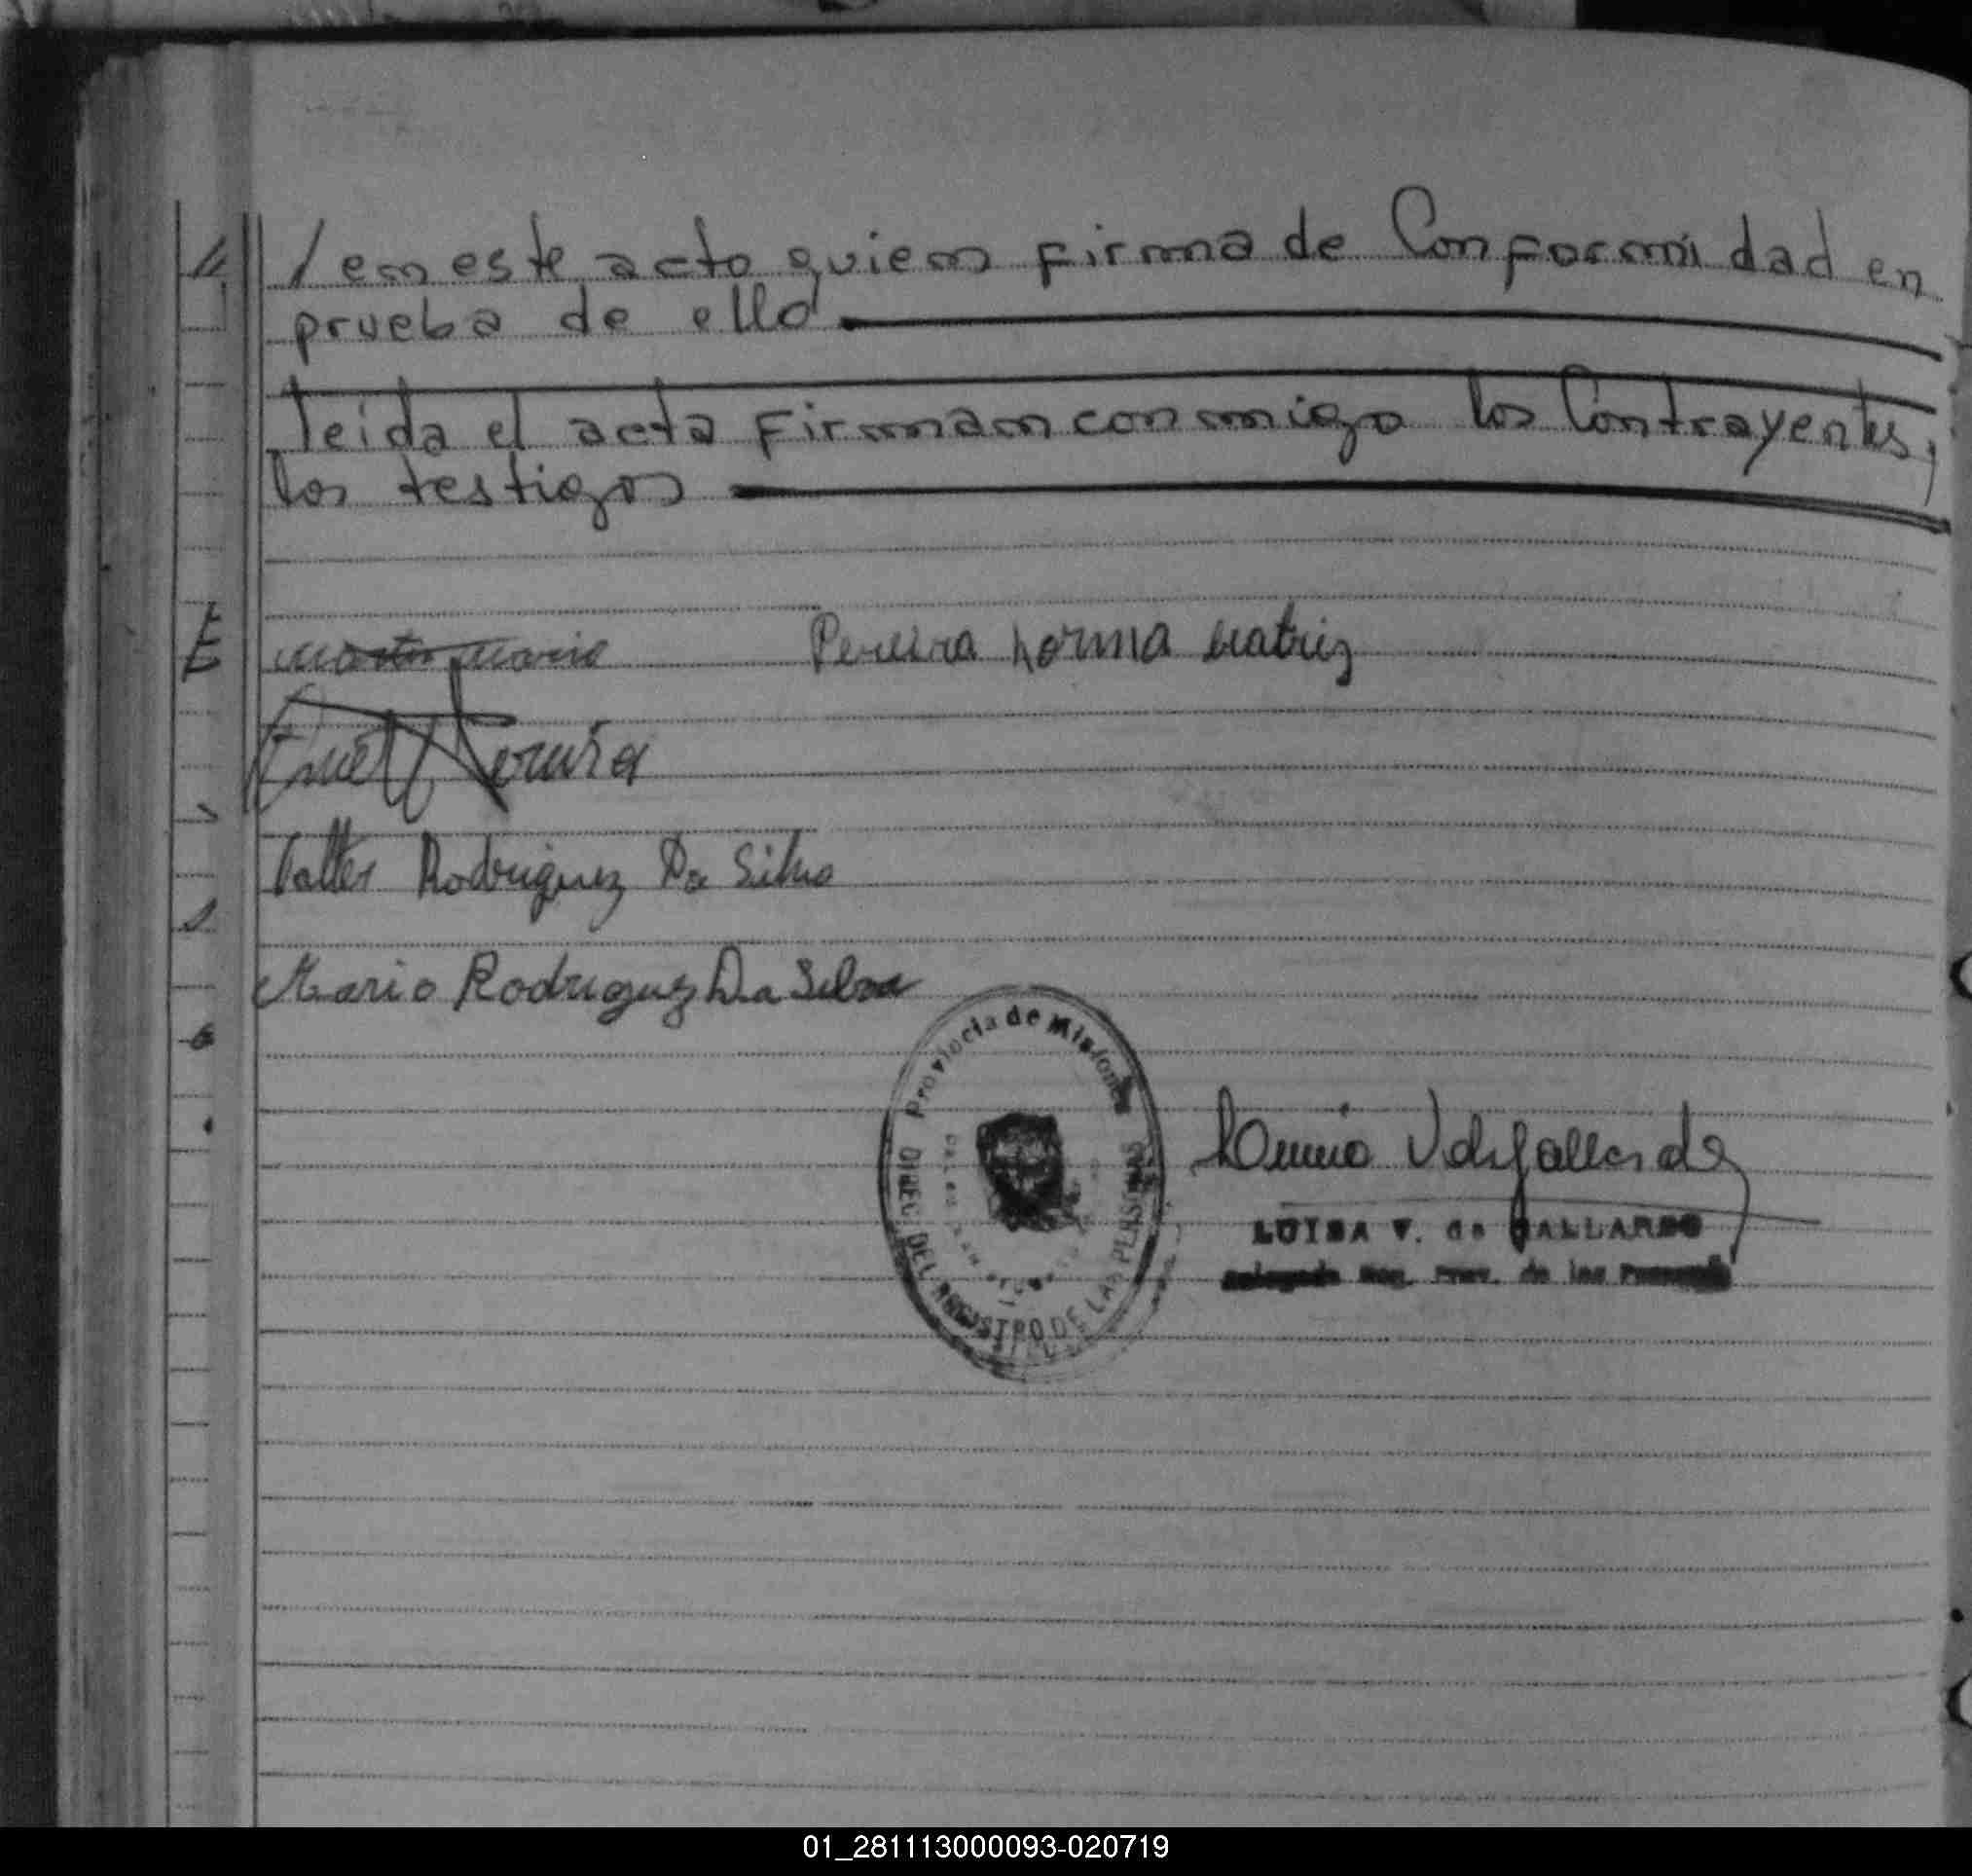 / en este acto quien firma de Conformidad en
prueba de ello
Leida el acta firman conmigo los Contrayentes,
los testigos
Pereira norma beatriz
Pereira
Valter Rodriguez Da Silva
Mario Rodriguez Da Silva
Provincia de Misiones
DIREC. DEL REGISTRO DE LAS PERSONAS
LUISA V. de GALLARDO
Delegada Reg. Prov. de las Personas
01_281113000093-020719